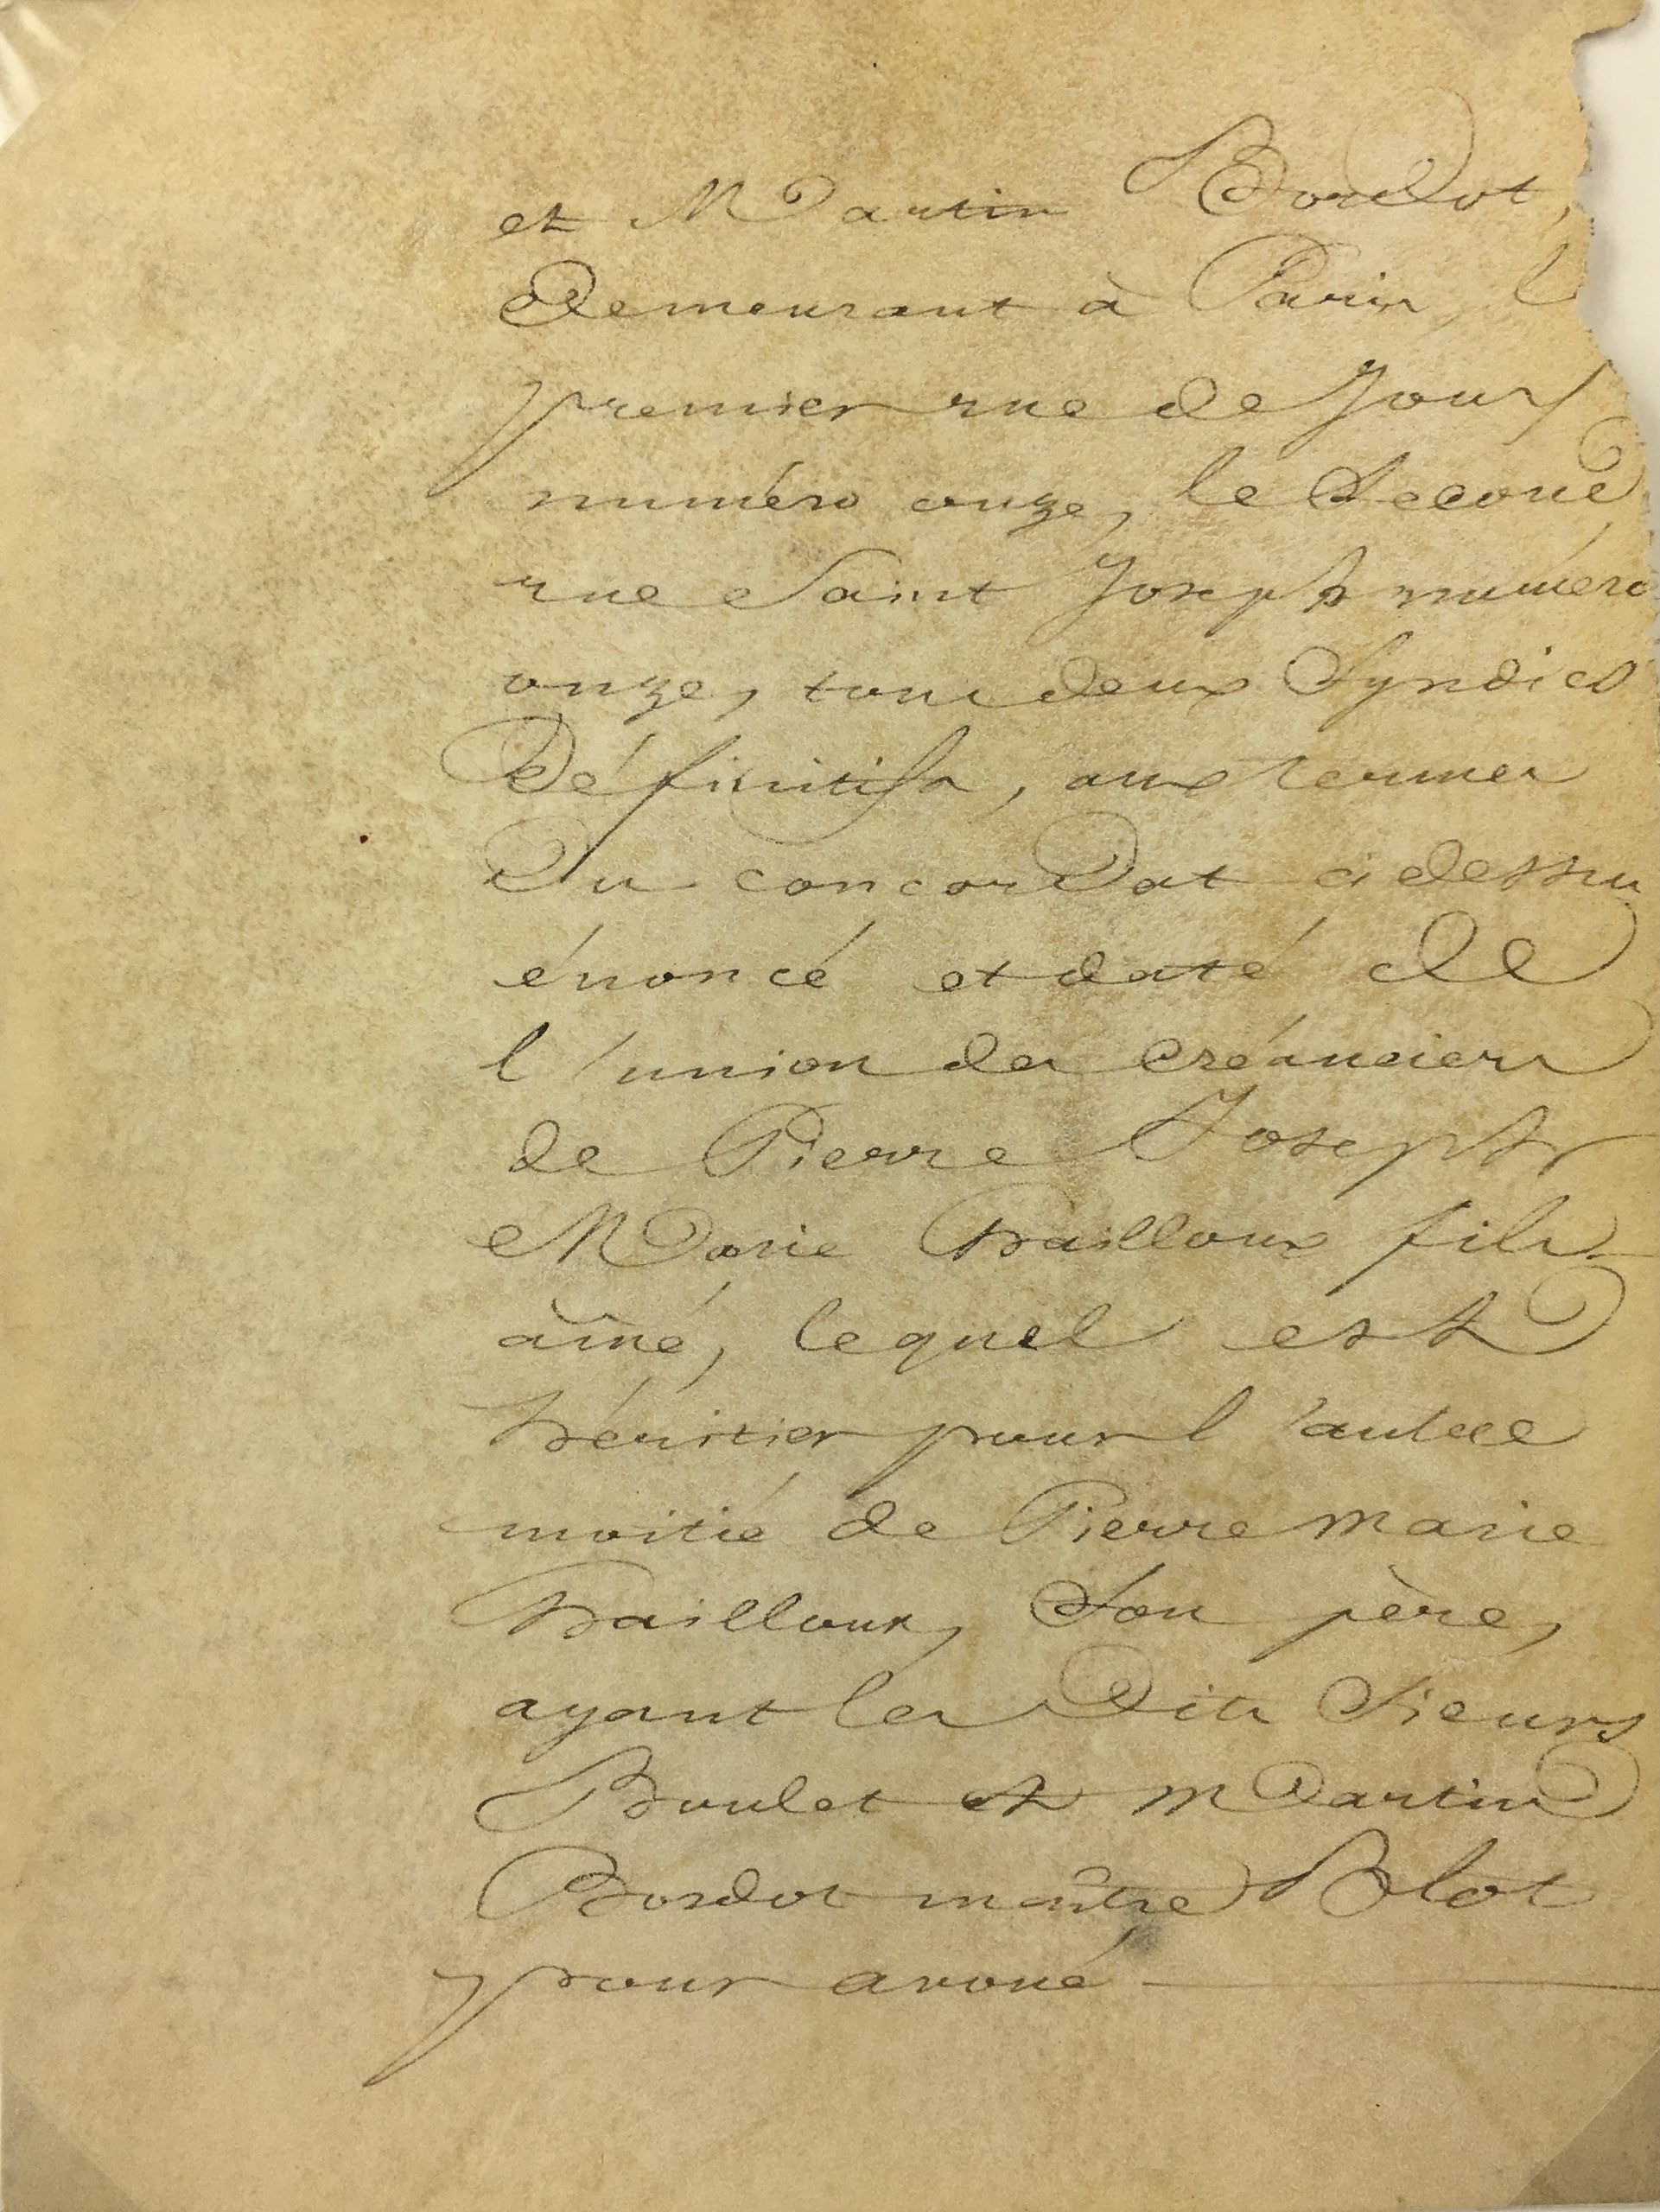 et Martin Bordot,
demeurant à Paris, l
premier rue de Jouy
numéro onze, le second
rue Saint Joseph numéro
onze, tous deux Syndics
définitifs, aux termes
du concordat ci dessus
énoncé et daté de
l'union des créanciers
de Pierre Joseph
Marie hailloux fils
aîné, lequel est
héritier pour l'autre
moitié de Pierre Marie
hailloux, Son père,
ayant les dits Sieurs
Boulet et Martin
Bordot maître Blot
pour avoué